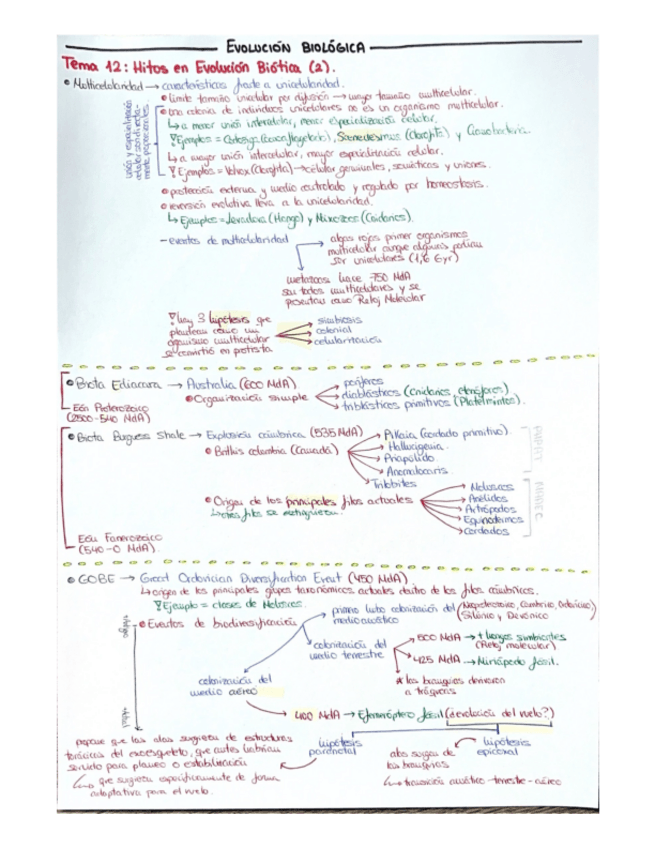 EVOLUCIÓN BIOLÓGICA
Tema 12: Hitos en Evolución Biótica (2).
Multicelularidad → características frente a unicelularidad.
límite tamaño unicelular por difusión → mayor tamaño multicelular.
una colonia de individuos unicelulares no es un organismo multicelular.
↳ a menor unión intercelular, menor especialización celular.
Ejemplos = (Choanoflagelado), Scenedesmus (Clorofita) y Cianobacteria.
↳ a mayor unión intercelular, mayor especialización celular.
Ejemplos = Volvox (Clorofita) → células germinales, somáticas y uniones.
unión y especialización celular son directamente proporcionales
protección externa y medio controlado y regulado por homeostasis.
reversión evolutiva lleva a la unicelularidad.
↳ Ejemplos = Levadura (Hongo) y Mixozoos (Cnidarios).
- eventos de multicelularidad
algas rojas primer organismos
multicelular aunque algunas podían
ser unicelulares (1,6 Gyr)
metazoos hace 750 MdA
son todos multicelulares y se
presentan como Reloj Molecular
hay 3 hipótesis que
plantean cómo un
organismo multicelular
se convirtió en protista
simbiosis
colonial
celularización
Biota Ediacara → Australia (600 MdA)
Organización simple
poríferos
diablásticos (Cnidarios, ctenóforos)
triblásticos primitivos (Platelmintos).
Eón Proterozoico
(2500-540 MdA)
Biota Burgess Shale → Explosión cámbrica (535 MdA)
British columbia (Canadá)
Pikaia (cordado primitivo).
Hallucigenia
Priapúlido
Anomalocaris
Trilobites
Origen de los principales filos actuales
↳ otros filos se extinguieron.
Moluscos
Anélidos
Artrópodos
Equinodermos
Cordados
Eón Fanerozoico
(540-0 MdA)
GOBE → Great Ordovician Diversification Event (450 MdA)
↳ origen de los principales grupos taxonómicos actuales dentro de los filos cámbricos.
Ejemplo = clases de Moluscos.
Eventos de biodiversificación
primero hubo colonización del
medio acuático
(Neoproterozoico, Cámbrico, Ordovícico,
Silúrico y Devónico)
colonización del
medio terrestre
500 MdA → + hongos simbiontes
(Reloj molecular)
425 MdA → Miriápodo fósil.
* las branquias derivaron
a tráqueas
colonización del
medio aéreo
400 MdA → Efemeróptero fósil (¿evolución del vuelo?)
hipótesis
paranotal
hipótesis
epicoxal
propone que las alas surgieron de estructuras
torácicas del exoesqueleto, que antes habrían
servido para planeo o estabilización
que surgieron específicamente de forma
adaptativa para el vuelo.
alas surgen de
las branquias
↳ transición acuático-terrestre-aéreo